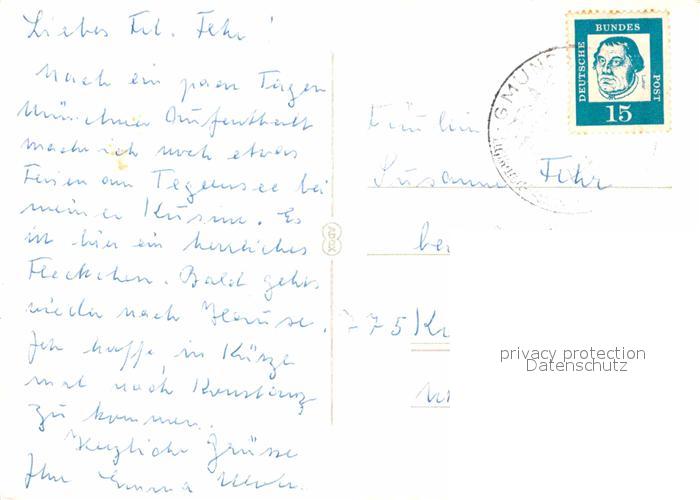 Liebes Frl. Fehr!
Nach ein paar Tagen
Münchner Aufenthalt
mach ich noch etwas
Ferien am Tegernsee bei
meiner Kusine. Es
ist hier ein herrliches
Fleckchen. Bald gehts
wieder nach Hause.
Ich hoffe in Kürze
mal nach Konstanz
zu kommen.
Herzliche Grüsse
Ihre Emma
DEUTSCHE
BUNDES
POST
15
GMUND
Fräulein
Susanne Fehr
bei
ADOX
775 K
privacy protection
Datenschutz